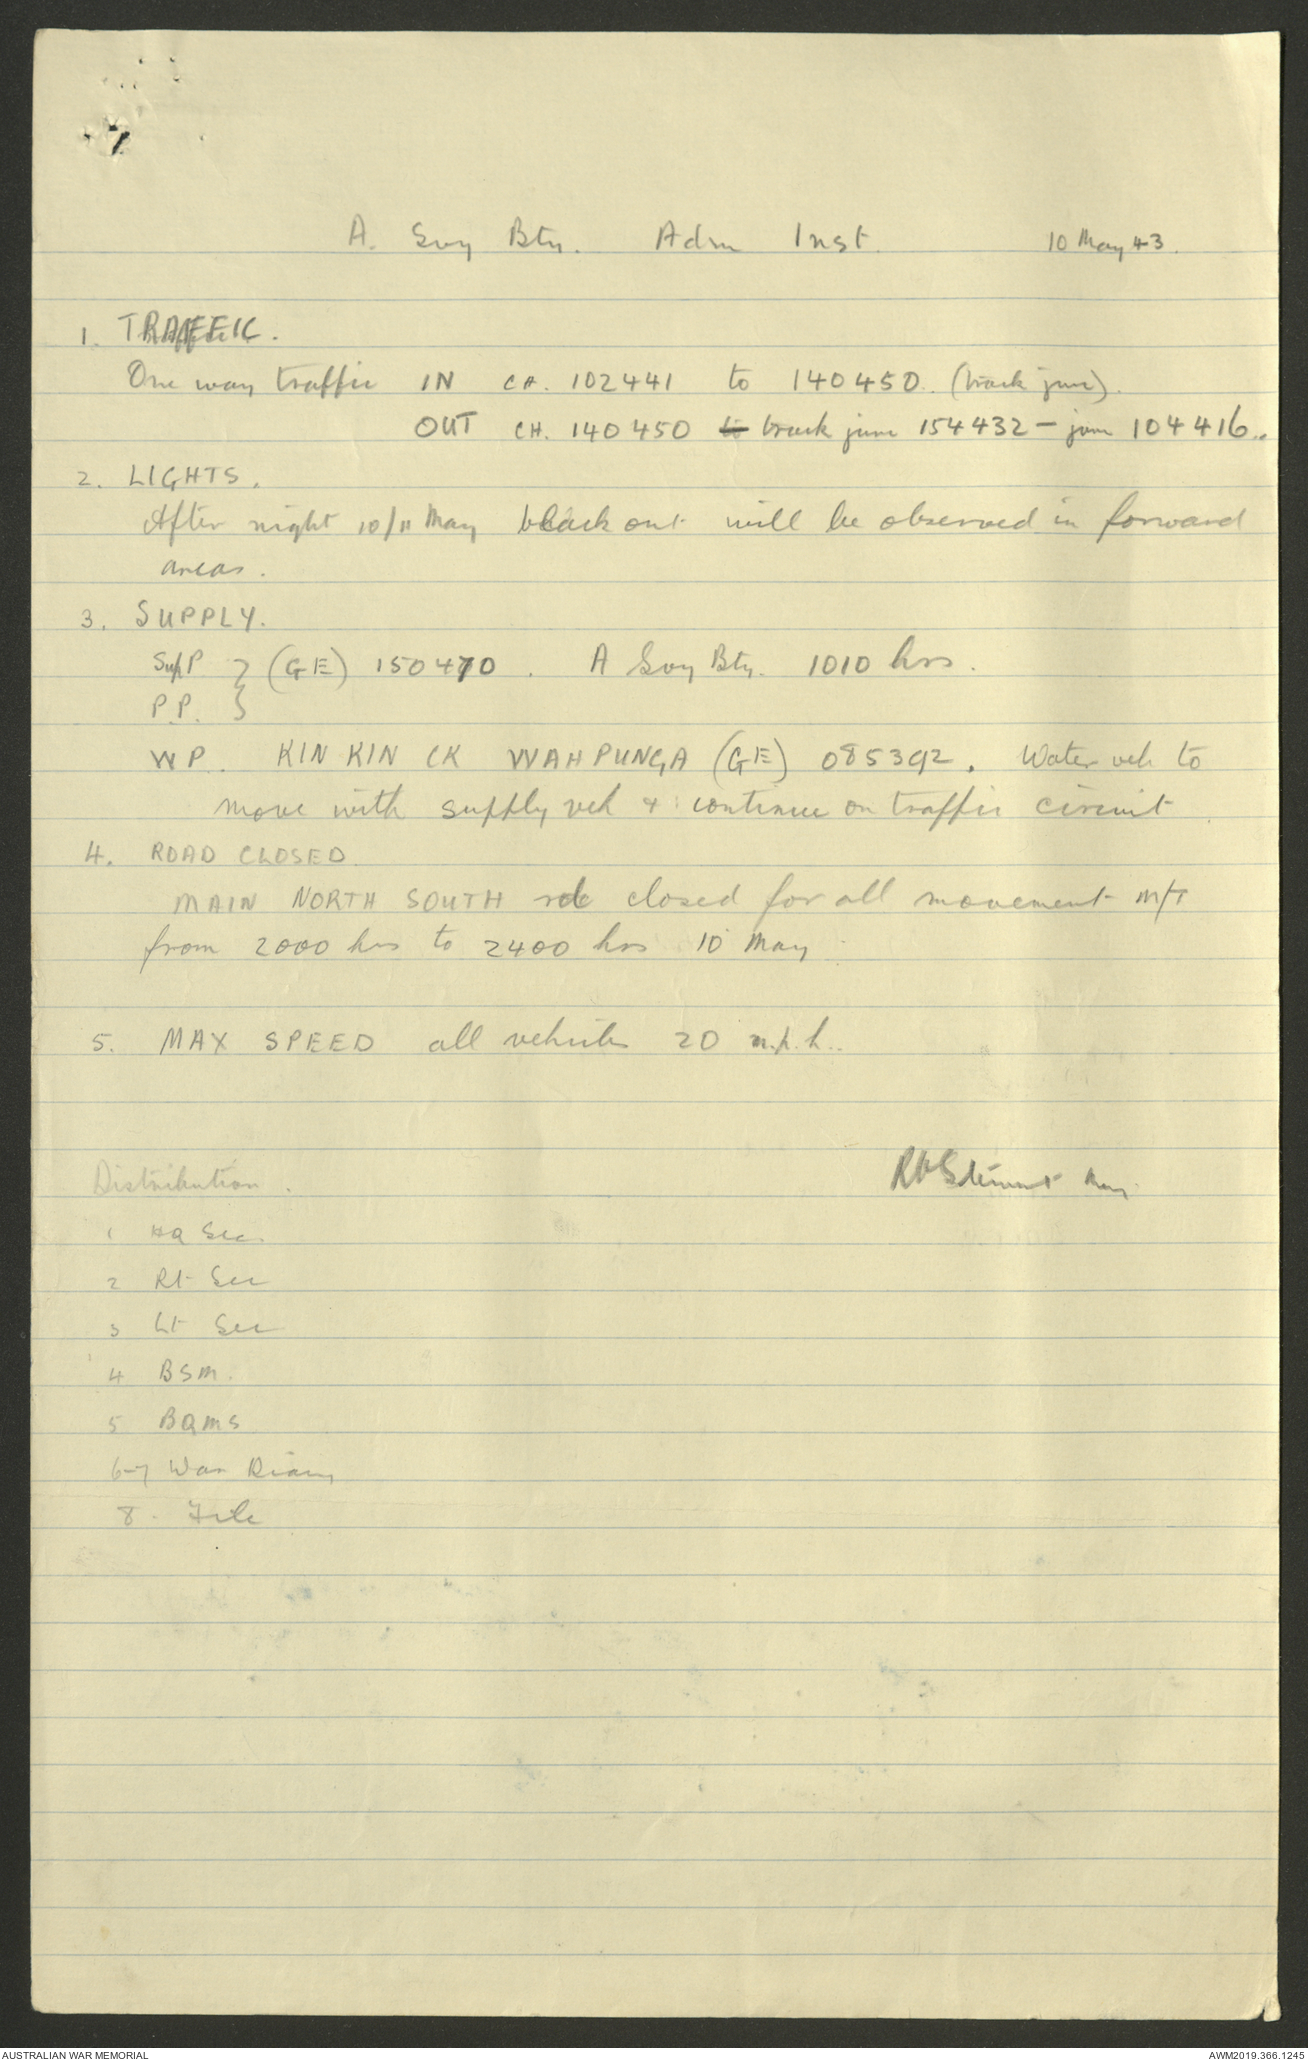 A. Svy Bty. Adm Inst. 10 May 43.
1. TRAFFIC.
One way traffic IN CH. 102441 to 140450. (track junc).
OUT CH. 140450 to track junc 154432 - junc 104416..
2. LIGHTS.
After night 10/11 May black out will be observed in forward
areas.
3. SUPPLY.
SupP } (GE) 150470. A Svy Bty. 1010 hrs.
P.P. }
WP. KIN KIN CK WAHPUNGA (GE) 085392. Water veh to
move with supply veh & continue on traffic circuit.
4. ROAD CLOSED
MAIN NORTH SOUTH rd closed for all movement M/T
from 2000 hrs to 2400 hrs 10 May.
5. MAX SPEED all vehicles 20 m.p.h..
Distribution.
1 HQ Sec.
2 Rt Sec
3 Lt Sec
4 BSM.
5 BQMS
6-7 War Diary
8. File
AUSTRALIAN WAR MEMORIAL
AWM2019.366.1245